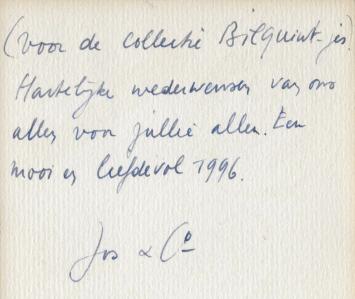 (voor de collectie Bilquint-jes)
Hartelijke wederwensen van ons
allen voor jullie allen. Een
mooi en liefdevol 1996.
Jos & Co